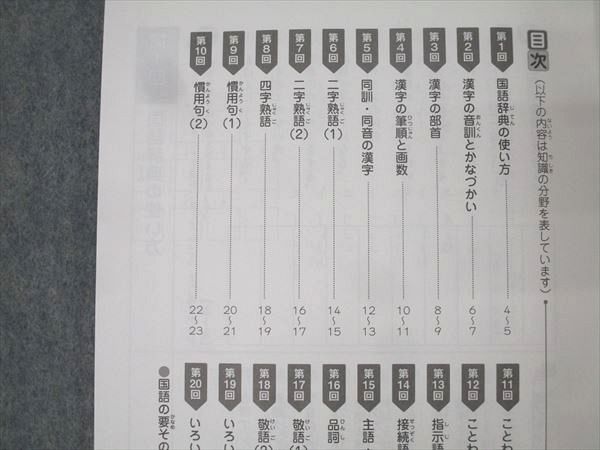 目次
（以下の内容は知識の分野を表しています）
第1回 国語辞典の使い方 4〜5
第2回 漢字の音訓とかなづかい 6〜7
第3回 漢字の部首 8〜9
第4回 漢字の筆順と画数 10〜11
第5回 同訓・同音の漢字 12〜13
第6回 二字熟語(1) 14〜15
第7回 二字熟語(2) 16〜17
第8回 四字熟語 18〜19
第9回 慣用句(1) 20〜21
第10回 慣用句(2) 22〜23
第11回 ことわ
第12回 ことわ
第13回 指示語
第14回 接続語
第15回 主語
第16回 品詞
第17回 敬語(1)
第18回 敬語(2)
第19回 いろい
第20回 いろい
●国語の要その